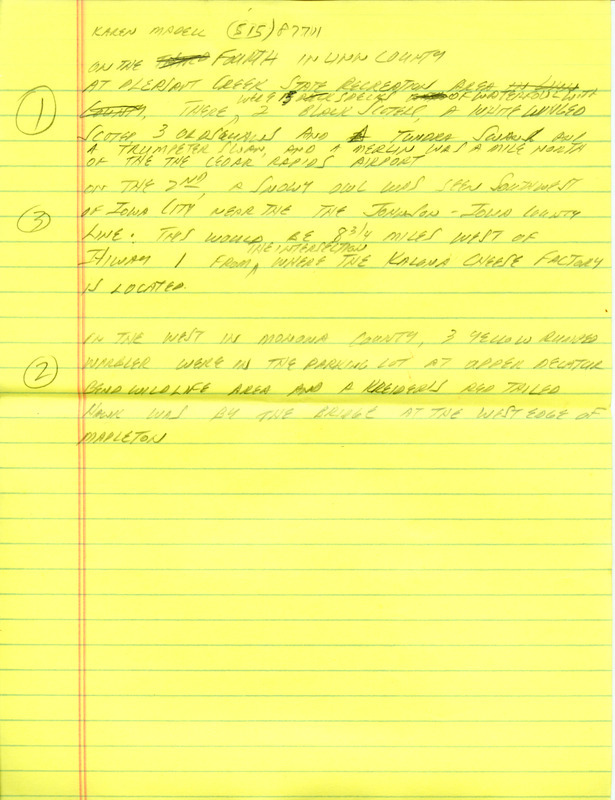 KAREN MADELL (515) 87701
ON THE FOURTH IN LINN COUNTY
AT PLEASANT CREEK STATE RECREATION AREA IN LINN
WERE 13 SPECIES OF WATERFOWL WITH
1 COUNTY, THERE, 2 BLACK SCOTERS, A WHITE WINGED
SCOTER 3 OLDSQUAWS AND A TUNDRA SWAN AND
A TRUMPETER SWAN, AND A MERLIN WAS A MILE NORTH
OF THE THE CEDAR RAPIDS AIRPORT
ON THE 2ND, A SNOWY OWL WAS SEEN SOUTHWEST
3 OF IOWA CITY NEAR THE THE JOHNSON - IOWA COUNTY
LINE. THIS WOULD BE 8 3/4 MILES WEST OF
THE INTERSECTION
HIWAY 1 FROM WHERE THE KALONA CHEESE FACTORY
IS LOCATED.
IN THE WEST IN MONONA COUNTY, 3 YELLOW RUMPED
2 WARBLER WERE IN THE PARKING LOT AT UPPER DECATUR
BEND WILDLIFE AREA AND A KREIDER'S RED TAILED
HAWK WAS BY THE BRIDGE AT THE WEST EDGE OF
MAPLETON